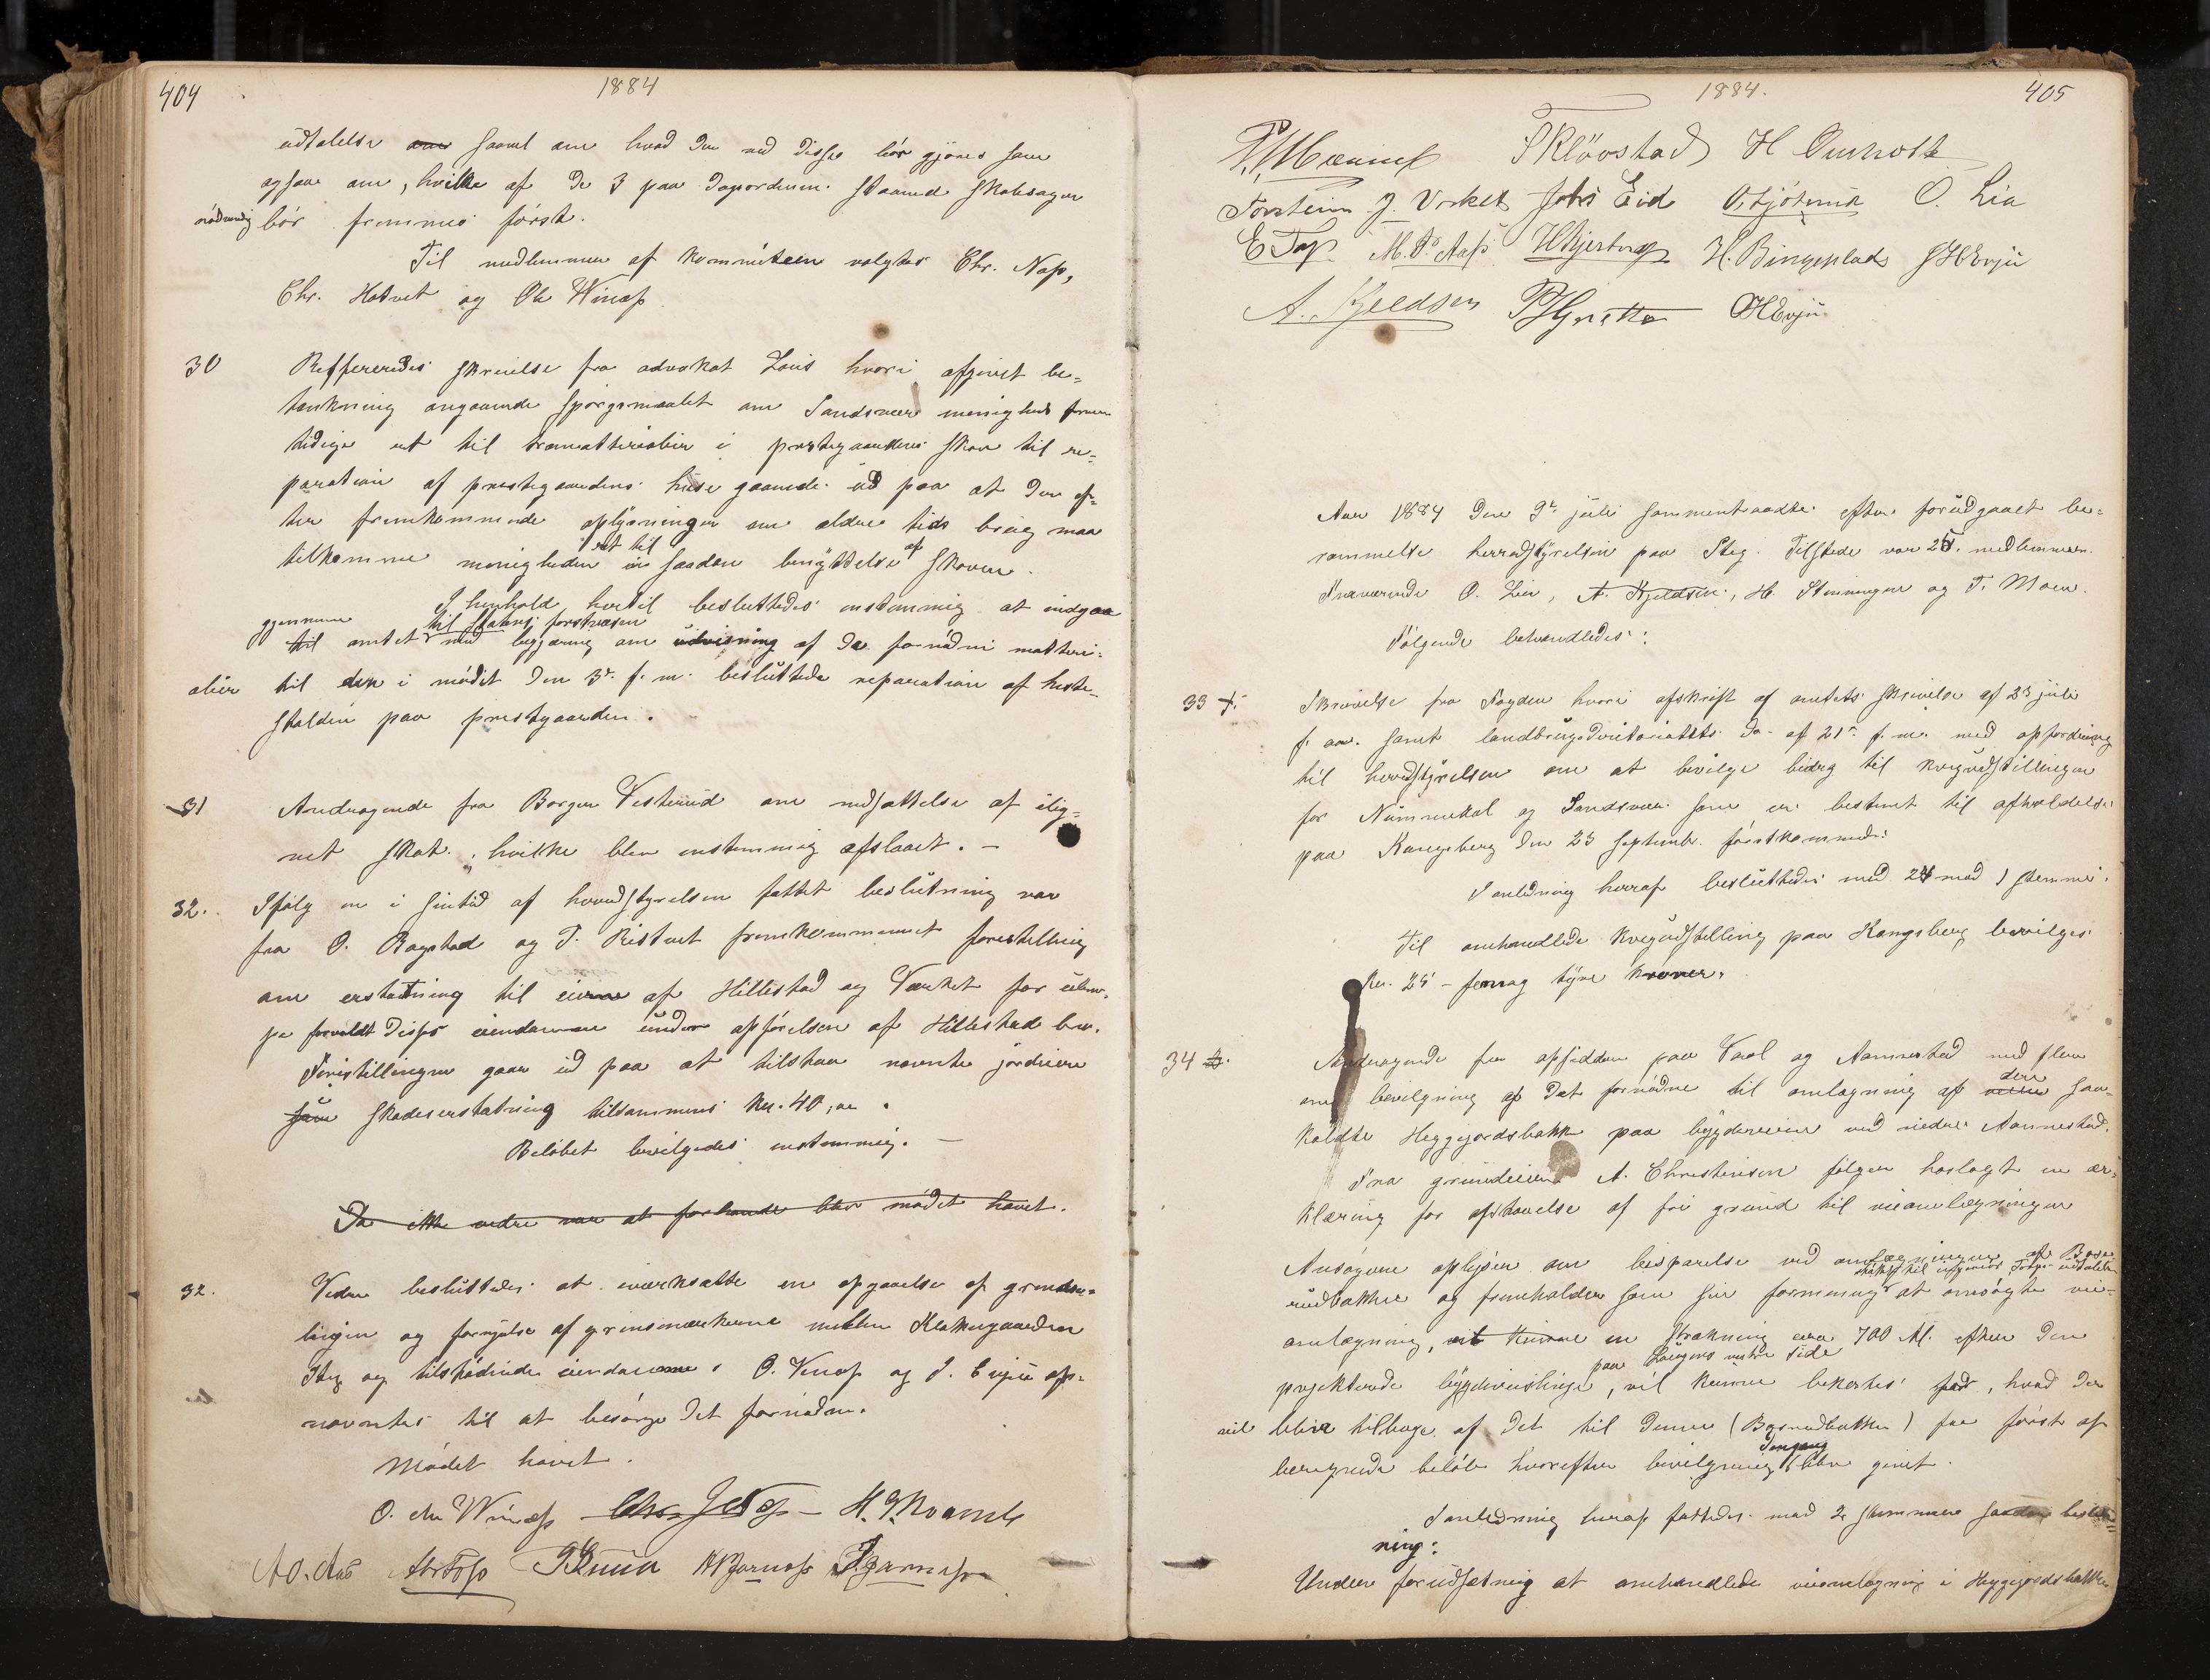 404
1884
udtalelse saavel om hvad der ved disse bør gjøres som
ogsaa om, hvilke af de 3 paa dagsordenen staaende skolesager
nødvendig bør fremmes først.
Til medlemmer af kommiteen valgtes Chr. Næss,
Chr. Hotvet og Ole Winæss
30 Reffereredes skrivelse fra advokat Lous hvori afgivet be=
tænkning angaaende spørgsmaalet om Sandsvær menigheds frem
tidige ret til træmatterialier i prestegaardens skov til re=
paration af prestegaardens huse gaaende ud paa at der ef=
ter fremkommende oplysninger om ældre tids brug maa
tilkomme menigheden ret til en saadan benyttelse af skoven.
I henhold hertil besluttedes enstemmig at indgaa
gjennem til amtet til statens forstvæsen med begjæring om udvisning af de fornødne matteri=
alier til den i mødet den 3de f. m. besluttede reparation af heste=
stalden paa prestgaarden.
31 Andragende fra Borger Vesterud om nedsættelse af ilig=
net skat, hvilke blev enstemmig afslaaet. —
32. Ifølg en i sintid af herredstyrelsen fattet beslutning var
fra O. Bagstad og T. Ristvet fremkommenet forestilling
om erstatning til eierne af Hillestad ogVærket for ulem=
pe forvoldt disses eiendomme under opførelsen af Hillestad bro.
Forestillingen gaar ud paa at tilstaa nævnte jordeiere
som skadeserstatning tilsammens Kr. 40,00.
Beløbet bevilgedes enstemmig. —
Da ikke andre var at forhandle blev mødet hævet.
32. Videre besluttedes at iværksætte en opgaaelse af grændse=
linjen og fornyelse af grænsemærkerne mellem Klokkergaarden
Steg og tilstødende eiendomme. O. Venæss og S. Evju op=
nævntes til at besørge det fornødne.
Mødet hævet.
O. Chr Winæss Chr. J Næss H. J. Kvamle
A O. Aas
1884.
405
T Kløvstad H Omholt
Torstein J. Verket Johs Eid O. Lia
E Foss M. P. Aass H. Bingeplads S H Evju
A. Kjeldsen H Evju
Aar 1884 den 9de juli sammentraadte efter forudgaaet be=
rammelse herredstyrelsen paa Steg. Tilstede var 25. medlemmer.
Fraværende O. Lia, A. Kjeldsen, H. Stenningen og T. Moen.
Følgende behandledes:
33 1. Skrivelse fra Fogden hvori afskrift af amtets skrivelse af 23 juli
f. aar. samt landbrugsdirektoriatets do. af 21de f. m. med opfordring
til herredstyrelsen om at bevilge bidrag til kvægudstillingen
for Nummedal og Sandsvær som er bestemt til afholdelse
paa Kongsberg den 23 septemb. førstkommende.
I anledning heraf besluttedes med 24 mod 1 stemme.
Til omhandlede kvægudstilling paa Kongsberg bevilges
Kr. 25 – femog tyve kroner.
34 2. Andragende fra opsiddere paa Vaal og Aannestad med flere
om bevilgning af det fornødne til omlægning af veien den saa=
kaldte Heggejordsbakk paa bygdeveien ved nedre Aannestad.
Fra grundeieren A. Christensen følger hoslagt en er=
klæring for afstaaelse af fri grund til veiomlægningen
Ansøgerne oplyser om besparelse ved omlægningen af Bære
rudbakken og fremholder som sin formening at ansøgte vei=
omlægning, vil kunne en strækning circa 700 M. efter den
projekterede bygdeveislinje paa Laagens vestre side, vil kunne bekostes for, hvad der
vil blive tilbage af det til denne (Bærerudbakken) paa først af
beregnede beløb hvorefter bevilgning dengang blev givet.
I anledning heraf fattedes mod 2 stemmer saadan beslut=
ning:
Under forudsætning at omhandlede veiomlægning i Heggejordsbakken